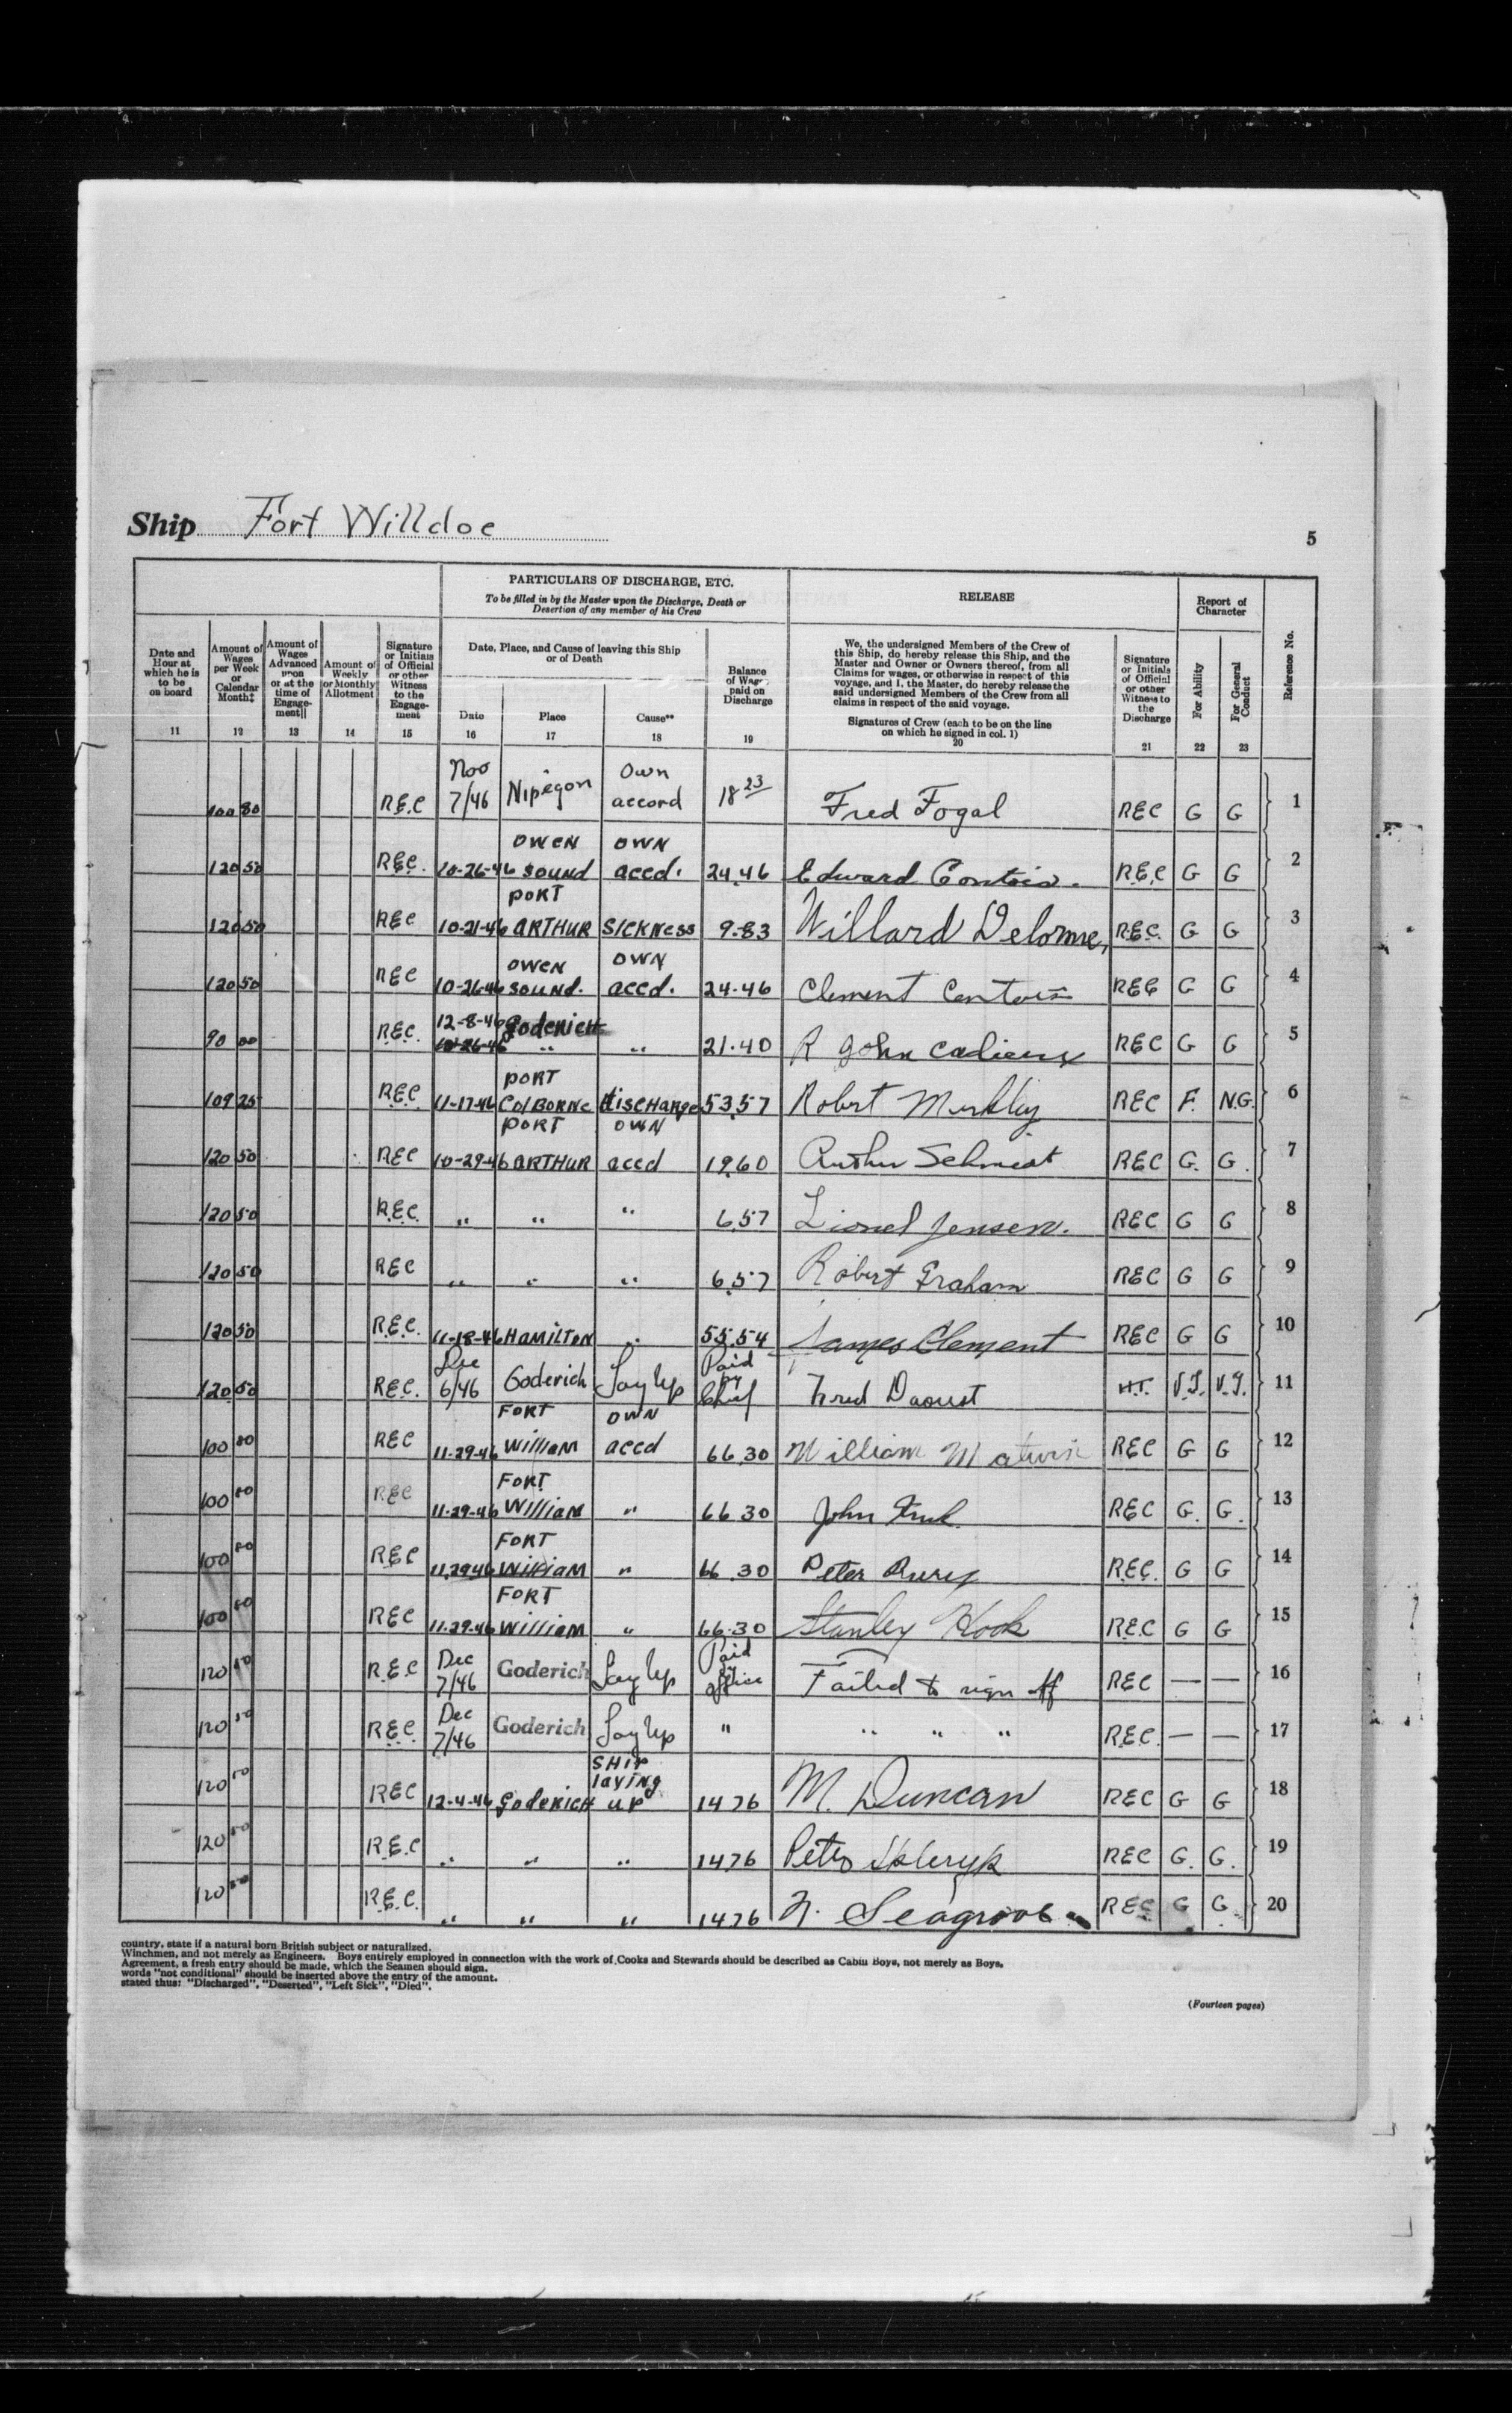 Ship Fort Willdoe
5
PARTICULARS OF DISCHARGE, ETC.
To be filled in by the Master upon the Discharge, Death or
Desertion of any member of his Crew
RELEASE
Report of
Character
Reference No.
Date and
Hour at
which he is
to be
on board
Amount of
Wages
per Week
or
Calendar
Month‡
Amount of
Wages
Advanced
upon
or at the
time of
Engage-
ment||
Amount of
Weekly
or Monthly
Allotment
Signature
or Initials
of Official
or other
Witness
to the
Engage-
ment
Date, Place, and Cause of leaving this Ship
or of Death
Date
Place
Cause**
Balance
of Wages
paid on
Discharge
We, the undersigned Members of the Crew of
this Ship, do hereby release this Ship, and the
Master and Owner or Owners thereof, from all
Claims for wages, or otherwise in respect of this
voyage, and I, the Master, do hereby release the
said undersigned Members of the Crew from all
claims in respect of the said voyage.
Signatures of Crew (each to be on the line
on which he signed in col. 1)
Signature
or Initials
of Official
or other
Witness to
the
Discharge
For Ability
For General
Conduct
11 12 13 14 15 16 17 18 19 20 21 22 23
100 80 R.E.C Nov 7/46 Nipegon Own accord 18 23 Fred Fogal REC G G 1
120 50 R.E.C. 10-26-46 OWEN SOUND OWN accd. 24.46 Edward Contois. R.E.C G G 2
120 50 REC 10-21-46 PORT ARTHUR SICKNESS 9.83 Willard Delorme, R.E.C. G G 3
120 50 REC 10-26-46 OWEN SOUND. OWN accd. 24.46 Clement Contois REC G G 4
90 00 R.E.C. 12-8-46 10-26-46 Goderich " " 21.40 R John Cadieux REC G G 5
109 25 R.E.C. 11-17-46 PORT COLBORNE discharge 53.57 Robert REC F. N.G. 6
120 50 REC 10-29-46 PORT ARTHUR OWN accd 19.60 Arthur Schmidt REC G. G. 7
120 50 R.E.C. " " " 6.57 Lionel Jensen. REC G G 8
120 50 REC " " " 6.57 Robert Graham REC G G 9
120 50 R.E.C. 11-18-46 HAMILTON " 55.54 James Clement REC G G 10
120 50 R.E.C. Dec 6/46 Goderich Lay Up Paid by Chief Fred Daoust H.T. V.G. V.G. 11
100 80 REC 11-29-46 FORT William OWN accd 66.30 William REC G G 12
100 80 REC 11-29-46 FORT William " 66.30 John REC G. G. 13
100 80 REC 11.29.46 FORT William " 66.30 Peter REC. G G 14
100 80 REC 11.29.46 FORT William " 66.30 Stanley Hook R.E.C G G 15
120 50 R.E.C Dec 7/46 Goderich Lay Up Paid by office Failed to sign off REC — — 16
120 50 R.E.C. Dec 7/46 Goderich Lay Up " " " " R.E.C. — — 17
120 50 REC 12-4-46 Goderich SHIP laying up 14.76 M. Duncan REC G G 18
120 50 R.E.C " " " 14.76 Peter REC G. G. 19
120 50 R.E.C. " " " 14.76 Seagrove REC G G. 20
country, state if a natural born British subject or naturalized.
Winchmen, and not merely as Engineers. Boys entirely employed in connection with the work of Cooks and Stewards should be described as Cabin Boys, not merely as Boys.
Agreement, a fresh entry should be made, which the Seamen should sign.
words "not conditional" should be inserted above the entry of the amount.
stated thus: "Discharged", "Deserted", "Left Sick", "Died".
(Fourteen pages)